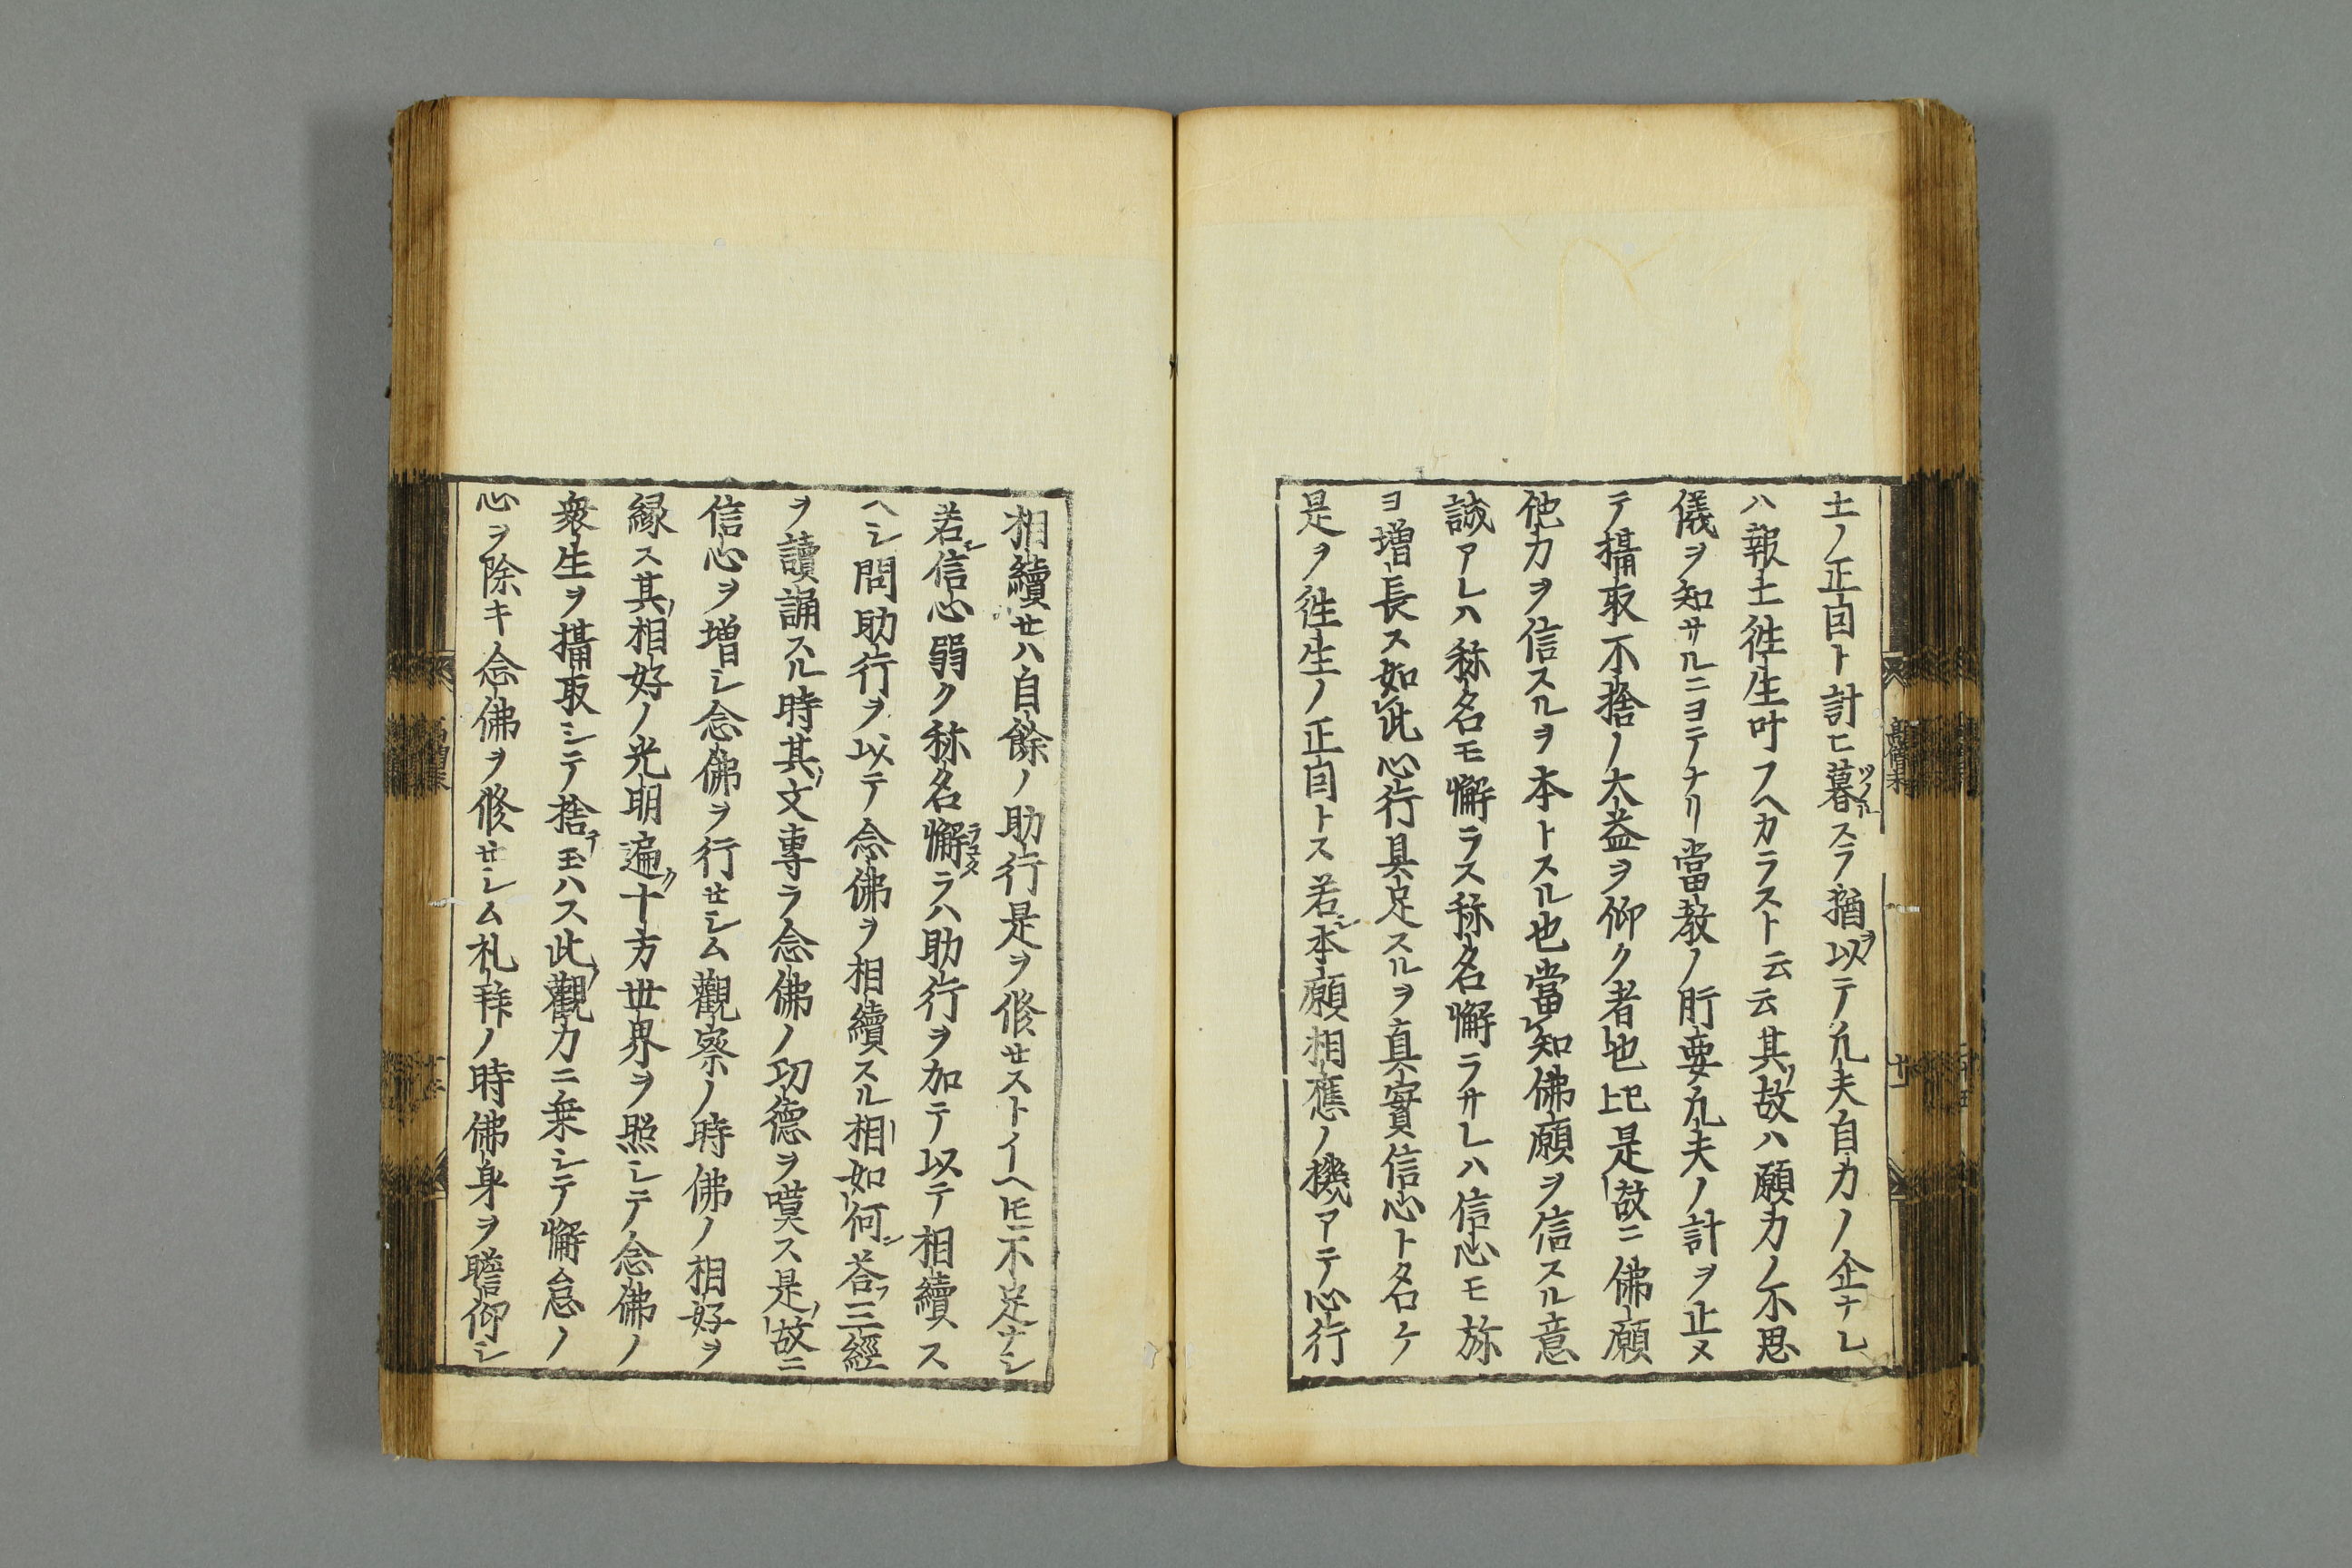 土ノ正因ト計ヒ暮スラ猶以テ凡夫自力ノ企ナレ
ハ報土往生叶フヘカラスト云云其故ハ願力ノ不思
儀ヲ知サルニヨテナリ當教ノ肝要凡夫ノ計ヲ止ヌ
テ攝取不捨ノ大益ヲ仰ク者也上比是故ニ佛願
他力ヲ信スルヲ本トスル也當知佛願ヲ信スル意
誠アレハ称名モ懈ラス称名懈ラサレハ信心モ旀
ヨ増長ス如此心行具足スルヲ真實信心ト名ケ
是ヲ往生ノ正因トス若シ本願相應ノ機アテ心行
相續セハ自餘ノ助行是ヲ修セストイヘ𪜈不足ナシ
若シ信心弱ク称名懈ラハ助行ヲ加テ以テ相續ス
ヘシ問助行ヲ以テ念佛ヲ相續スル相如何シ荅フ三經
ヲ讀誦スル時其ノ文專ラ念佛ノ功德ヲ嘆ス是ノ故ニ
信心ヲ増シ念佛ヲ行セシム觀察ノ時佛ノ相好ヲ
縁ス其ノ相好ノ光明遍ク十方世界ヲ照シテ念佛ノ
衆生ヲ攝取シテ捨テ玉ハス此ノ觀力ニ乗シテ懈怠ノ
心ヲ除キ念佛ヲ修セシム札拜ノ時佛身ヲ瞻仰シ